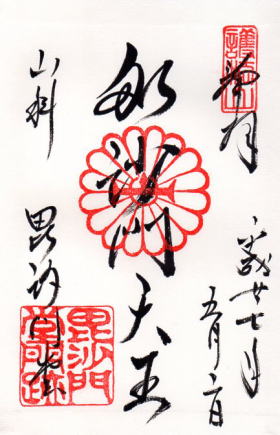 奉拝
平成廿七年
五月二日
毘沙門天王
山科
毘沙門堂
毘沙門
堂門跡